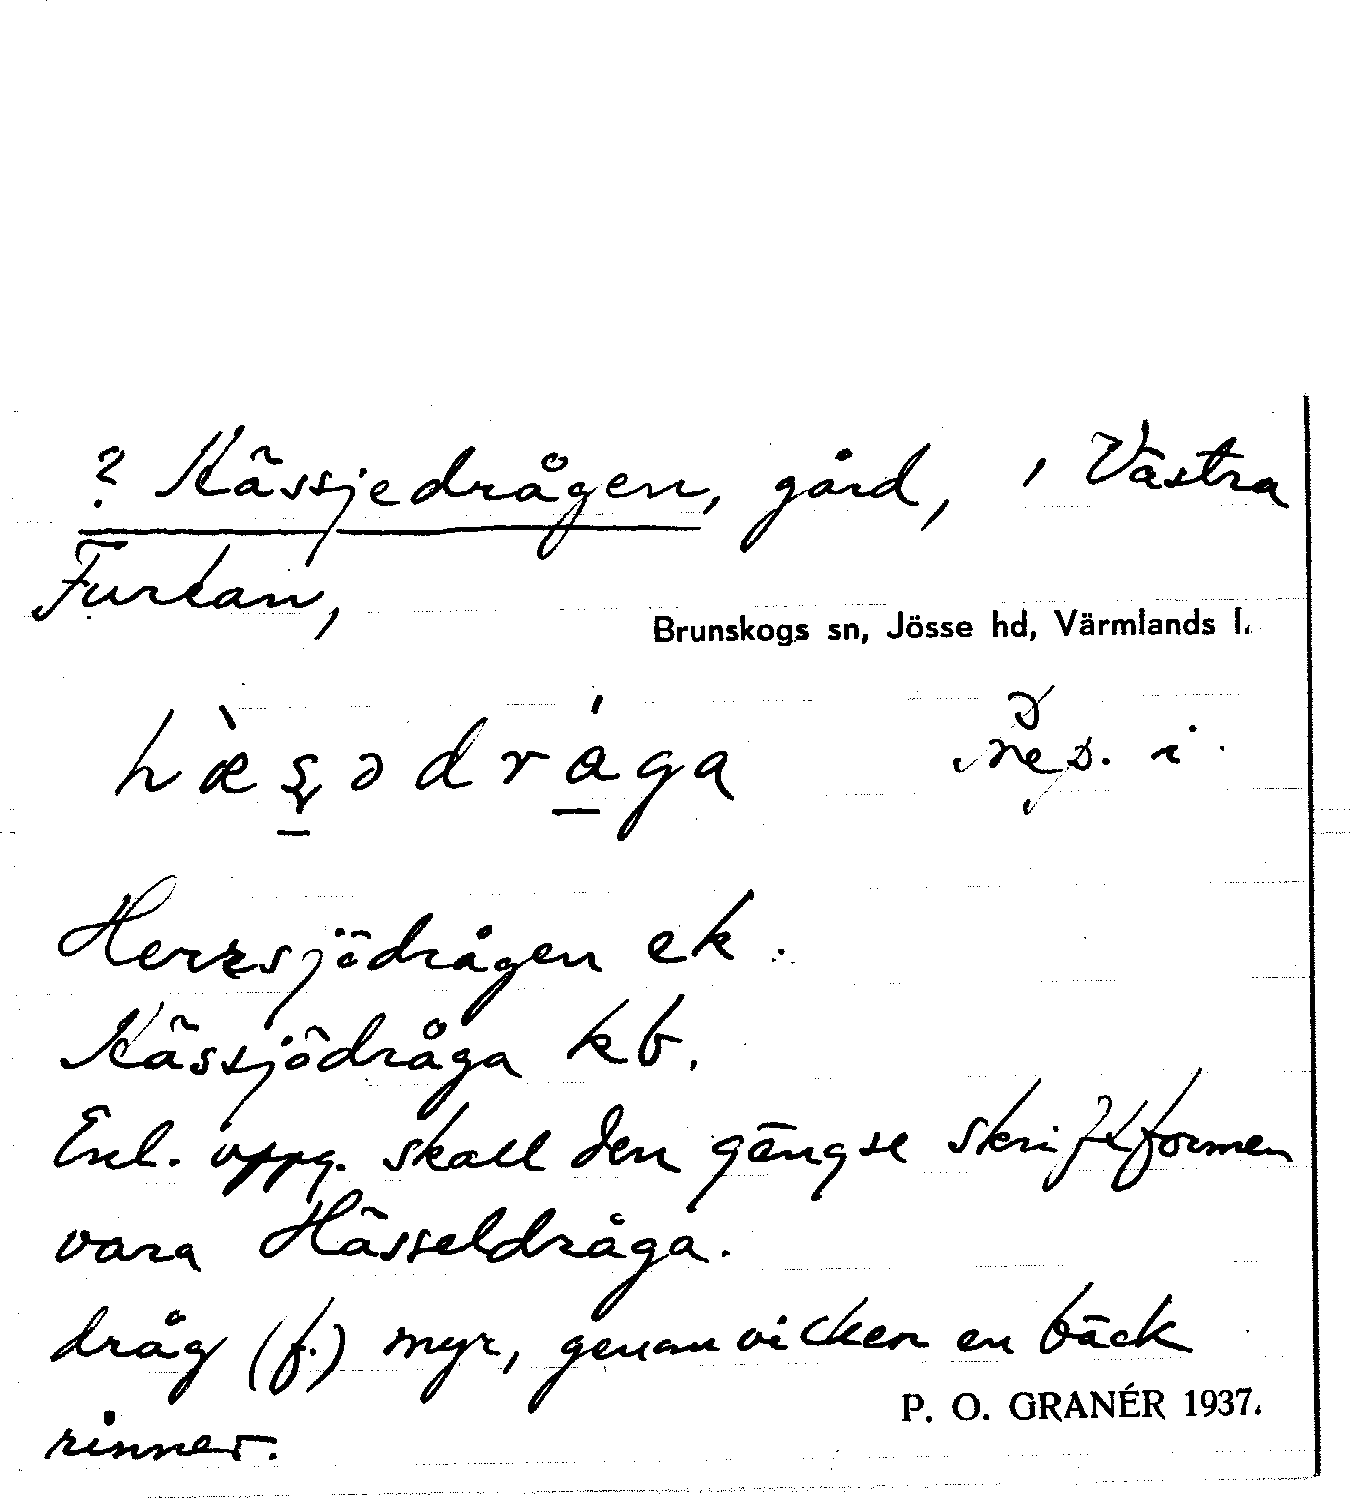 ? Kässjedrågen, gård, i Västra
Furtan,
Brunskogs sn, Jösse hd, Värmlands l.
Herrsjödrågen ek.
Kässjödråga kb.
Enl. uppg. skall den gängse skriftformen
vara Hässeldråga.
dråg (f.) myr, genom vilken en bäck
rinner.
P. O. GRANÉR 1937.